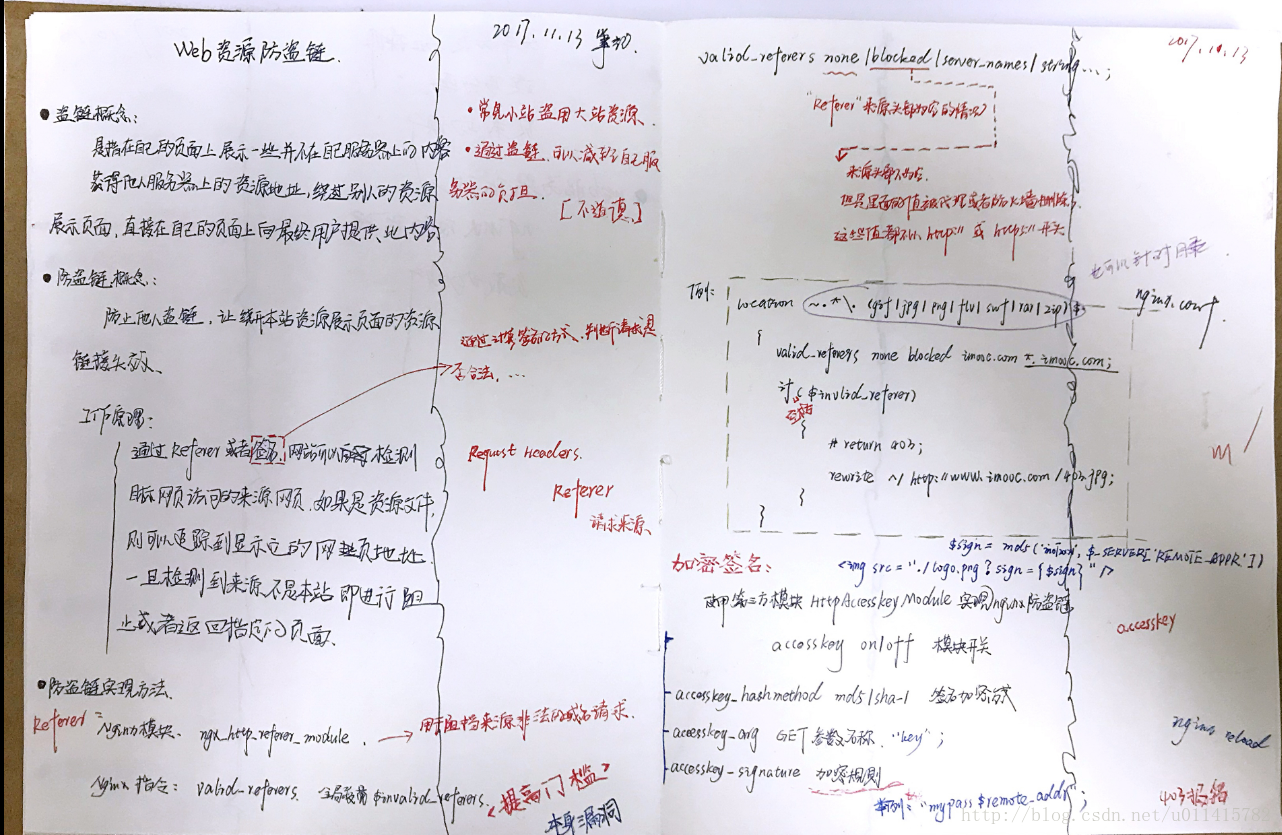 Web资源防盗链.
2017.11.13
盗链概念:
是指在自己的页面上展示一些并不在自己服务器上的内容
获得他人服务器上的资源地址,绕过别人的资源
展示页面,直接在自己的页面上向最终用户提供此内容
• 常见小站盗用大站资源、
• 通过盗链,可以减轻自己服
务器的负担.
[不道德.]
防盗链概念:
防止他人盗链,让绕开本站资源展示页面的资源
链接失效、
通过计算签名的方式、判断请求是
否合法,…
工作原理:
通过Referer或者签名,网站可以检测
目标网页访问的来源网页.如果是资源文件,
则可以追踪到显示它的网页地址.
一旦检测到来源不是本站 即进行阻
止或者返回指定的页面.
Request Headers.
Referer
请求来源、
防盗链实现方法、
Referer
Nginx模块、 ngx_http_referer_module.
用于阻挡来源非法的域名请求.
Nginx 指令: valid_referers. 全局变量 $invalid_referers.
<提高门槛>
本身漏洞
2017.11.13
valid_referers none | blocked | server_names | string...;
"Referer"来源头部为空的情况
来源头部不为空.
但是里面的值被代理或者防火墙删除.
这些值都不以 http:// 或 https:// 开头
也可以针对目录.
nginx.conf
location ~.*\.(gif|jpg|png|flv|swf|rar|zip)$
{
valid_referers none blocked imooc.com *.imooc.com;
if ($invalid_referer)
空格
{
# return 403;
rewrite ^/ http://www.imooc.com/403.jpg;
}
}
$sign = md5('imooc', $_SERVER['REMOTE_ADDR'])
加密签名:
<img src="./logo.png?sign={$sign}"/>
使用第三方模块 HttpAccessKeyModule 实现Nginx防盗链
accesskey
accesskey on/off 模块开关
accesskey_hashmethod md5|sha-1 签名加密方式
accesskey_arg GET参数名称. "key";
accesskey_signature 加密规则
"mypass$remote_addr";
nginx reload
403报错